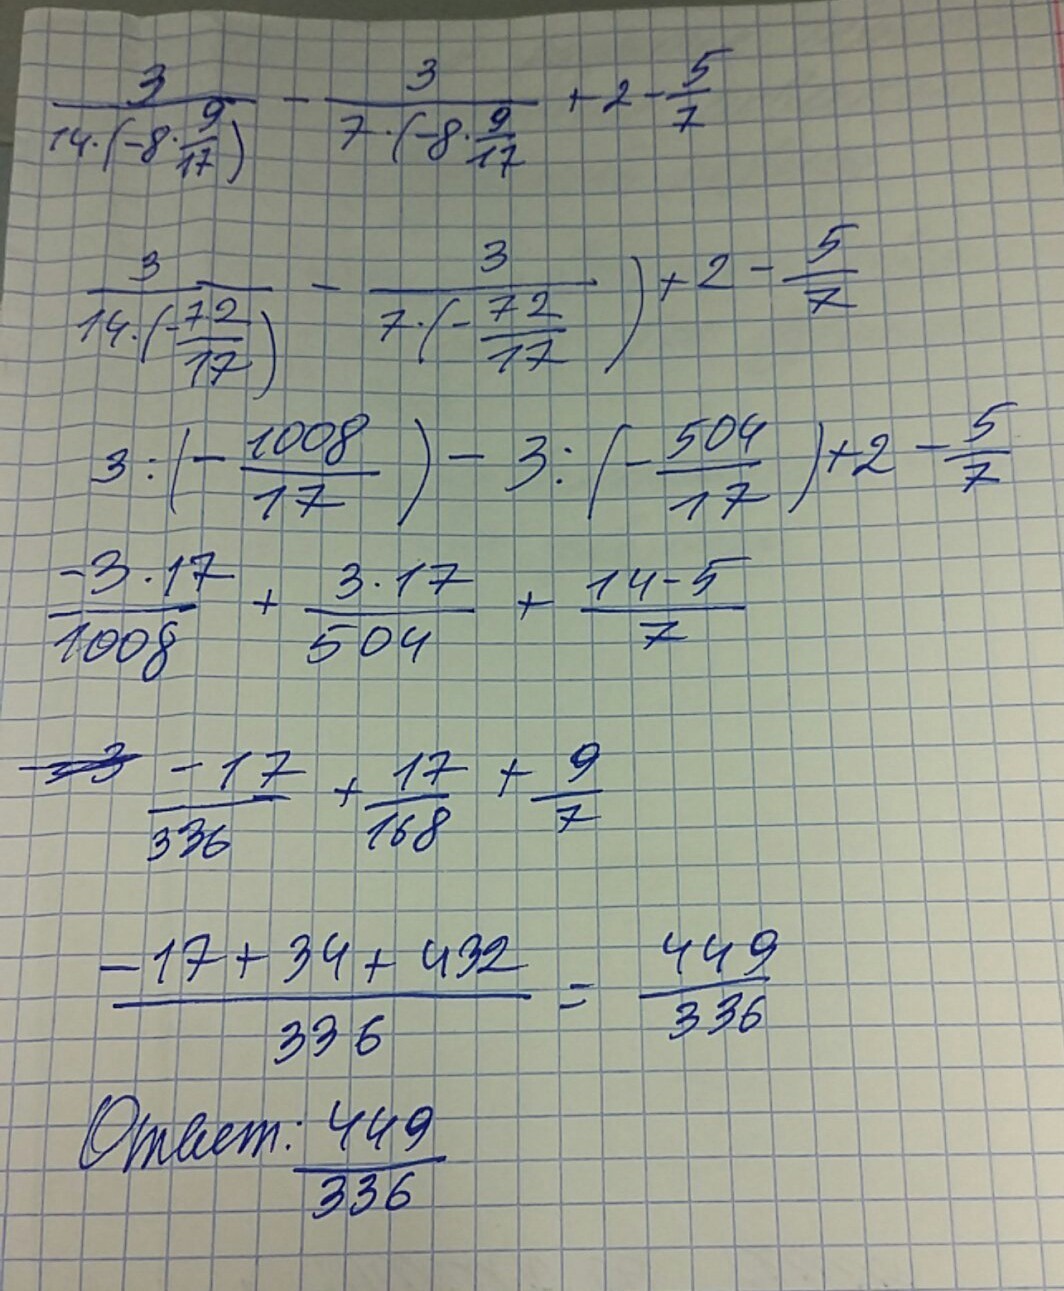 3/(14·(-8·9/17)) - 3/(7·(-8·9/17) + 2 - 5/7
3/(14·(-72/17)) - 3/(7·(-72/17)) + 2 - 5/7
3:(-1008/17) - 3:(-504/17) + 2 - 5/7
-3·17/1008 + 3·17/504 + 14-5/7
-17/336 + 17/168 + 9/7
-17+34+432/336 = 449/336
Ответ: 449/336